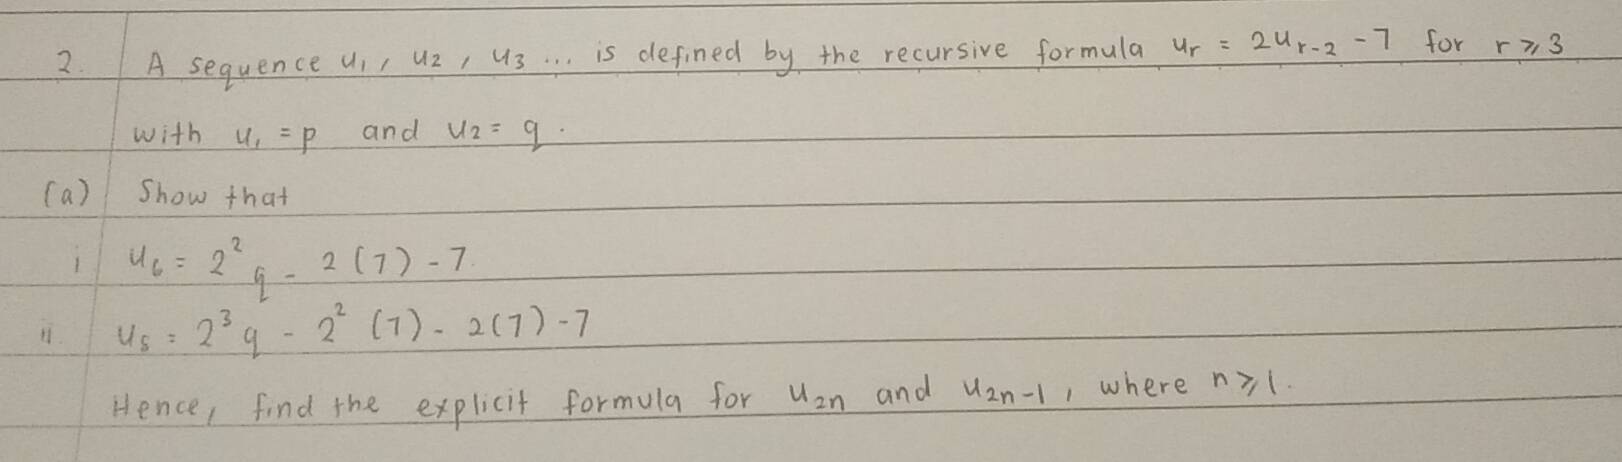 2. A sequence u₁, u₂, u₃ ... is defined by the recursive formula uᵣ = 2uᵣ₋₂ - 7 for r ⩾ 3
with u₁ = p and u₂ = q.
(a) Show that
i u₆ = 2² q - 2(7) - 7.
ii. u₈ = 2³ q - 2² (7) - 2(7) - 7
Hence, find the explicit formula for u₂ₙ and u₂ₙ₋₁, where n ⩾ 1.